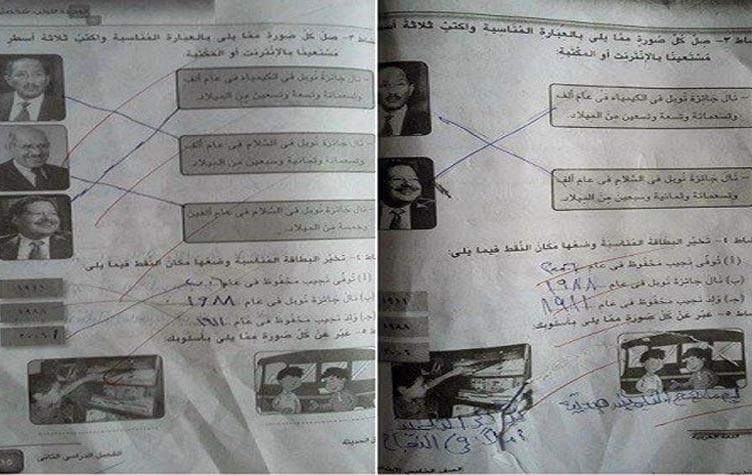 صل كل صورة مما يلى بالعبارة المناسبة واكتب ثلاثة أسطر
مستعينا بالإنترنت أو المكتبة.
- نال جائزة نوبل فى الكيمياء فى عام ألف
وتسعمائة وتسعة وتسعين من الميلاد.
- نال جائزة نوبل فى السلام فى عام ألف
وتسعمائة وثمانية وسبعين من الميلاد.
- نال جائزة نوبل فى السلام فى عام ألفين
وخمسة من الميلاد.
اط ٤- تخير البطاقة المناسبة وضعها مكان النقط فيما يلى:
(أ) توفى نجيب محفوظ فى عام ٢٠٠٦
(ب) نال جائزة نوبل فى عام ١٩٨٨
(جـ) ولد نجيب محفوظ فى عام ١٩١١
١٩١١
١٩٨٨
٢٠٠٦
اط ٥- عبر عن كل صورة مما يلى بأسلوبك.
الفصل الدراسى الثانى
١٥
اط ٣- صل كل صورة مما يلى بالعبارة المناسبة واكتب ثلاثة أسطر
مستعينا بالإنترنت أو المكتبة.
- نال جائزة نوبل فى الكيمياء فى عام ألف
وتسعمائة وتسعة وتسعين من الميلاد.
- نال جائزة نوبل فى السلام فى عام ألف
وتسعمائة وثمانية وسبعين من الميلاد.
اط ٤- تخير البطاقة المناسبة وضعها مكان النقط فيما يلى:
(أ) توفى نجيب محفوظ فى عام ٢٠٠٦
(ب) نال جائزة نوبل فى عام ١٩٨٨
(جـ) ولد نجيب محفوظ فى عام ١٩١١
١٩١١
١٩٨٨
٢٠٠٦
اط ٥- عبر عن كل صورة مما يلى بأسلوبك.
فى النجاح
اللغة العربية
الصف الخامس